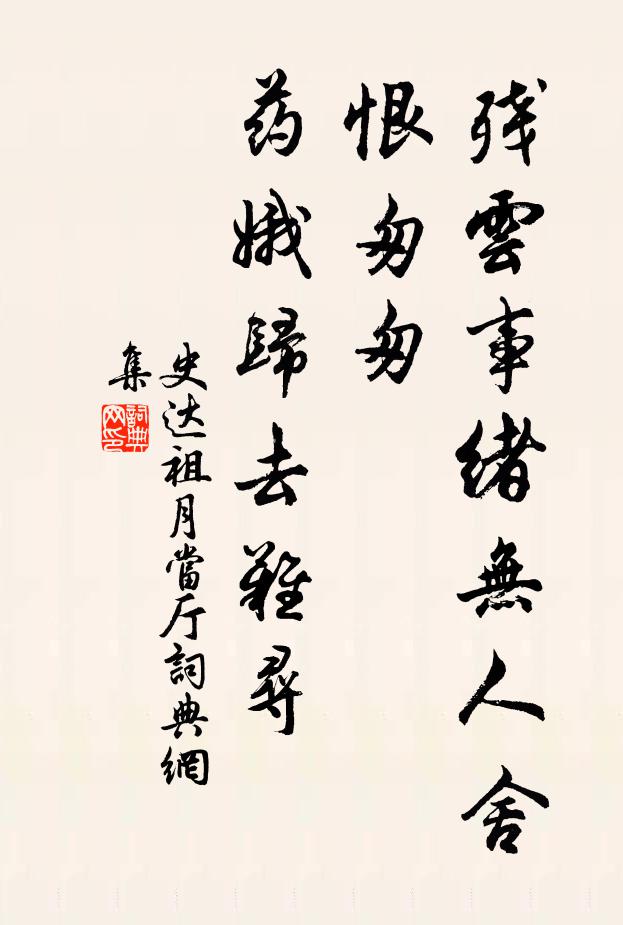 残雲事緒無人舍
恨匆匆
药娥歸去難尋
史达祖月當厅詞典網
集
詞典
网印